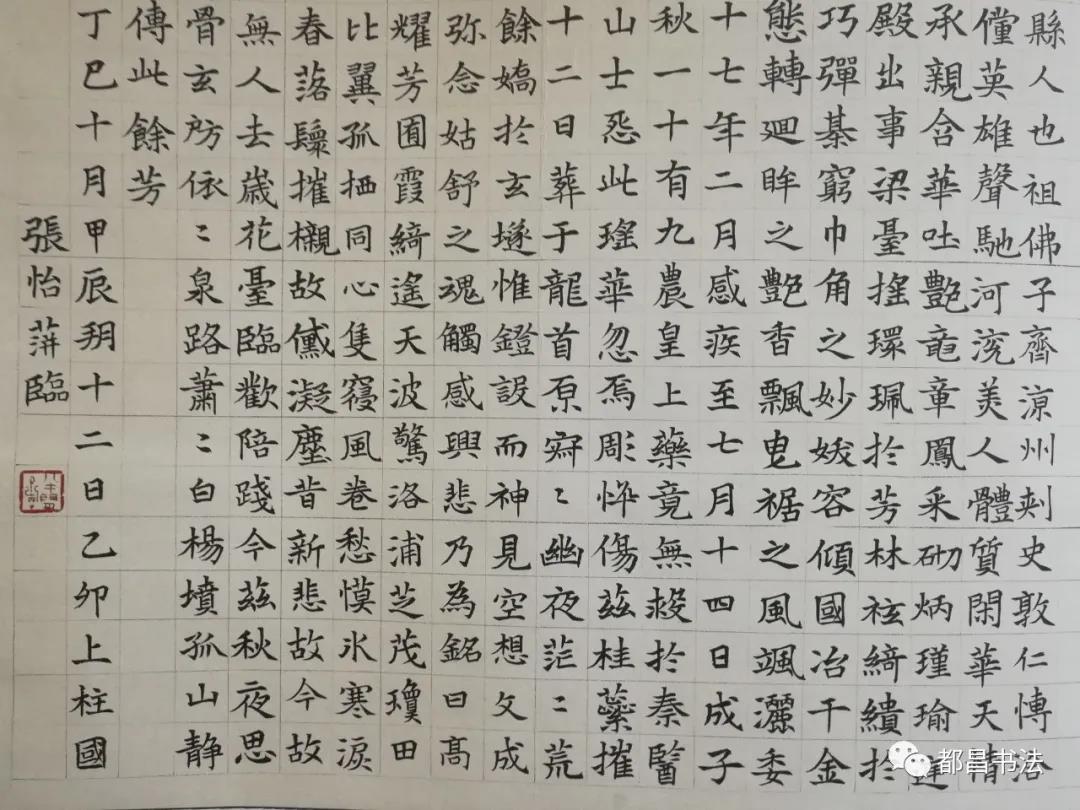 縣人也祖佛子齊涼州刺史敦仁博洽
儻英雄聲馳河沇美人體質閑華天情
承親含華吐艷竜章鳳采砌炳瑾瑜
殿出事梁臺搖環珮於芳林袨綺繢於
巧彈棊窮巾角之妙妖容傾國冶千金
態轉迴眸之艷香飄曳裾之風颯灑委
十七年二月感疾至七月十四日成子
秋一十有九農皇上藥竟無救於秦醫
山士怨此瑤華忽焉彫悴傷茲桂蘂摧
十二日葬于龍首原寂〻幽夜茫〻荒
餘嬌於玄燧惟鐙設而神見空想文成
弥念姑舒之魂觸感興悲乃為銘曰高
耀芳囿霞綺遙天波驚洛浦芝茂瓊田
比翼孤栖同心隻寢風卷愁慔氷寒淚
春落鬟摧櫬故黛凝塵昔新悲故今故
無人去歲花臺臨歡陪踐今茲秋夜思
骨玄房依〻泉路蕭〻白楊墳孤山靜
傳此餘芳
丁巳十月甲辰朔十二日乙卯上柱國
張怡萍臨
都昌书法